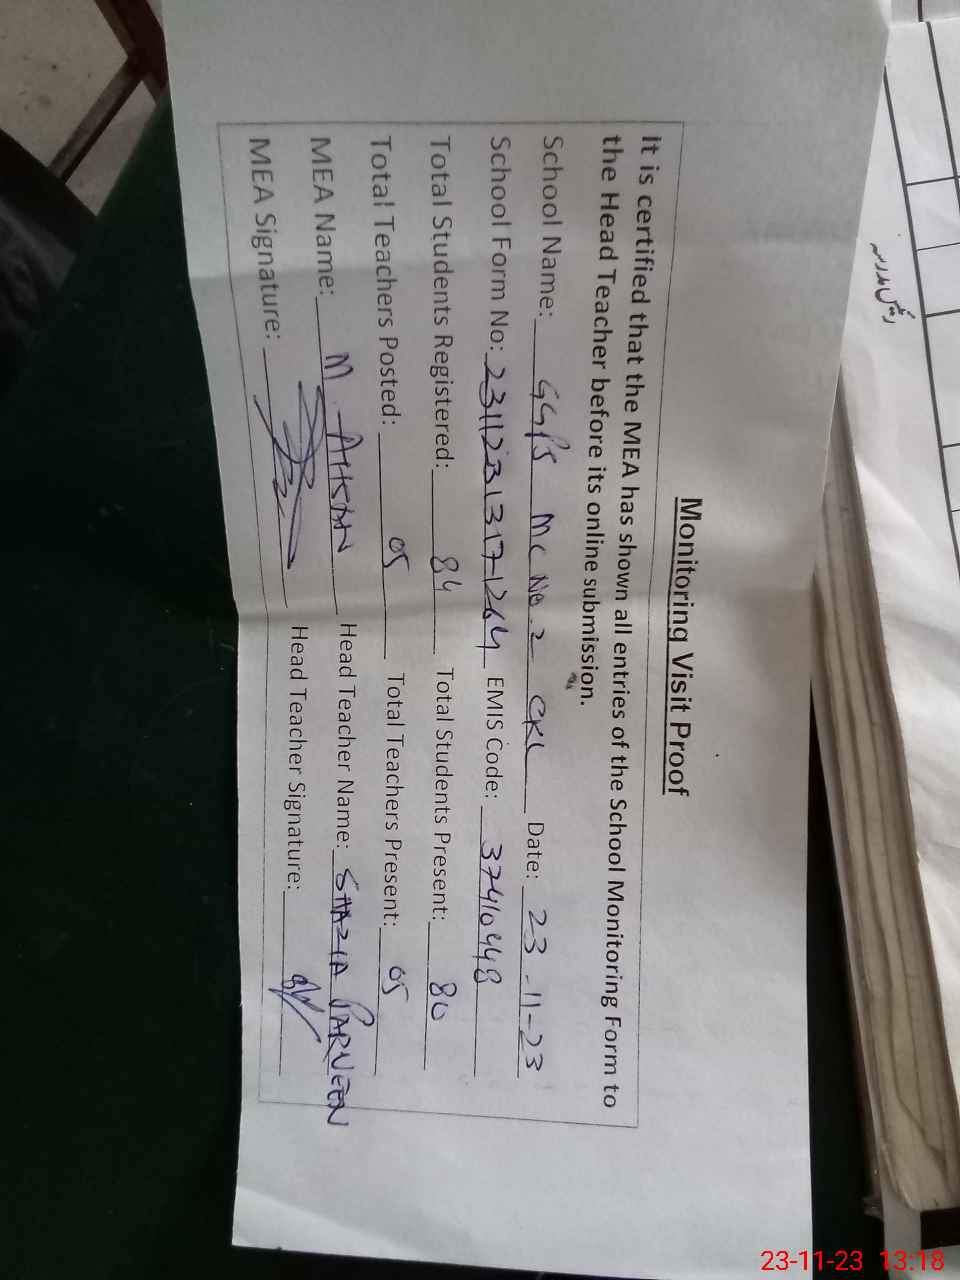 Monitoring Visit Proof
It is certified that the MEA has shown all entries of the School Monitoring Form to
the Head Teacher before its online submission.
School Name: GGPS MC No. 2 CKL Date: 23-11-23
School Form No: 231123131371264 EMIS Code: 37410448
Total Students Registered: 84 Total Students Present: 80
Total Teachers Posted: 05 Total Teachers Present: 05
MEA Name: M. AHSAN Head Teacher Name: SHAZIA PARVEEN
MEA Signature: Head Teacher Signature:
23-11-23 13:18